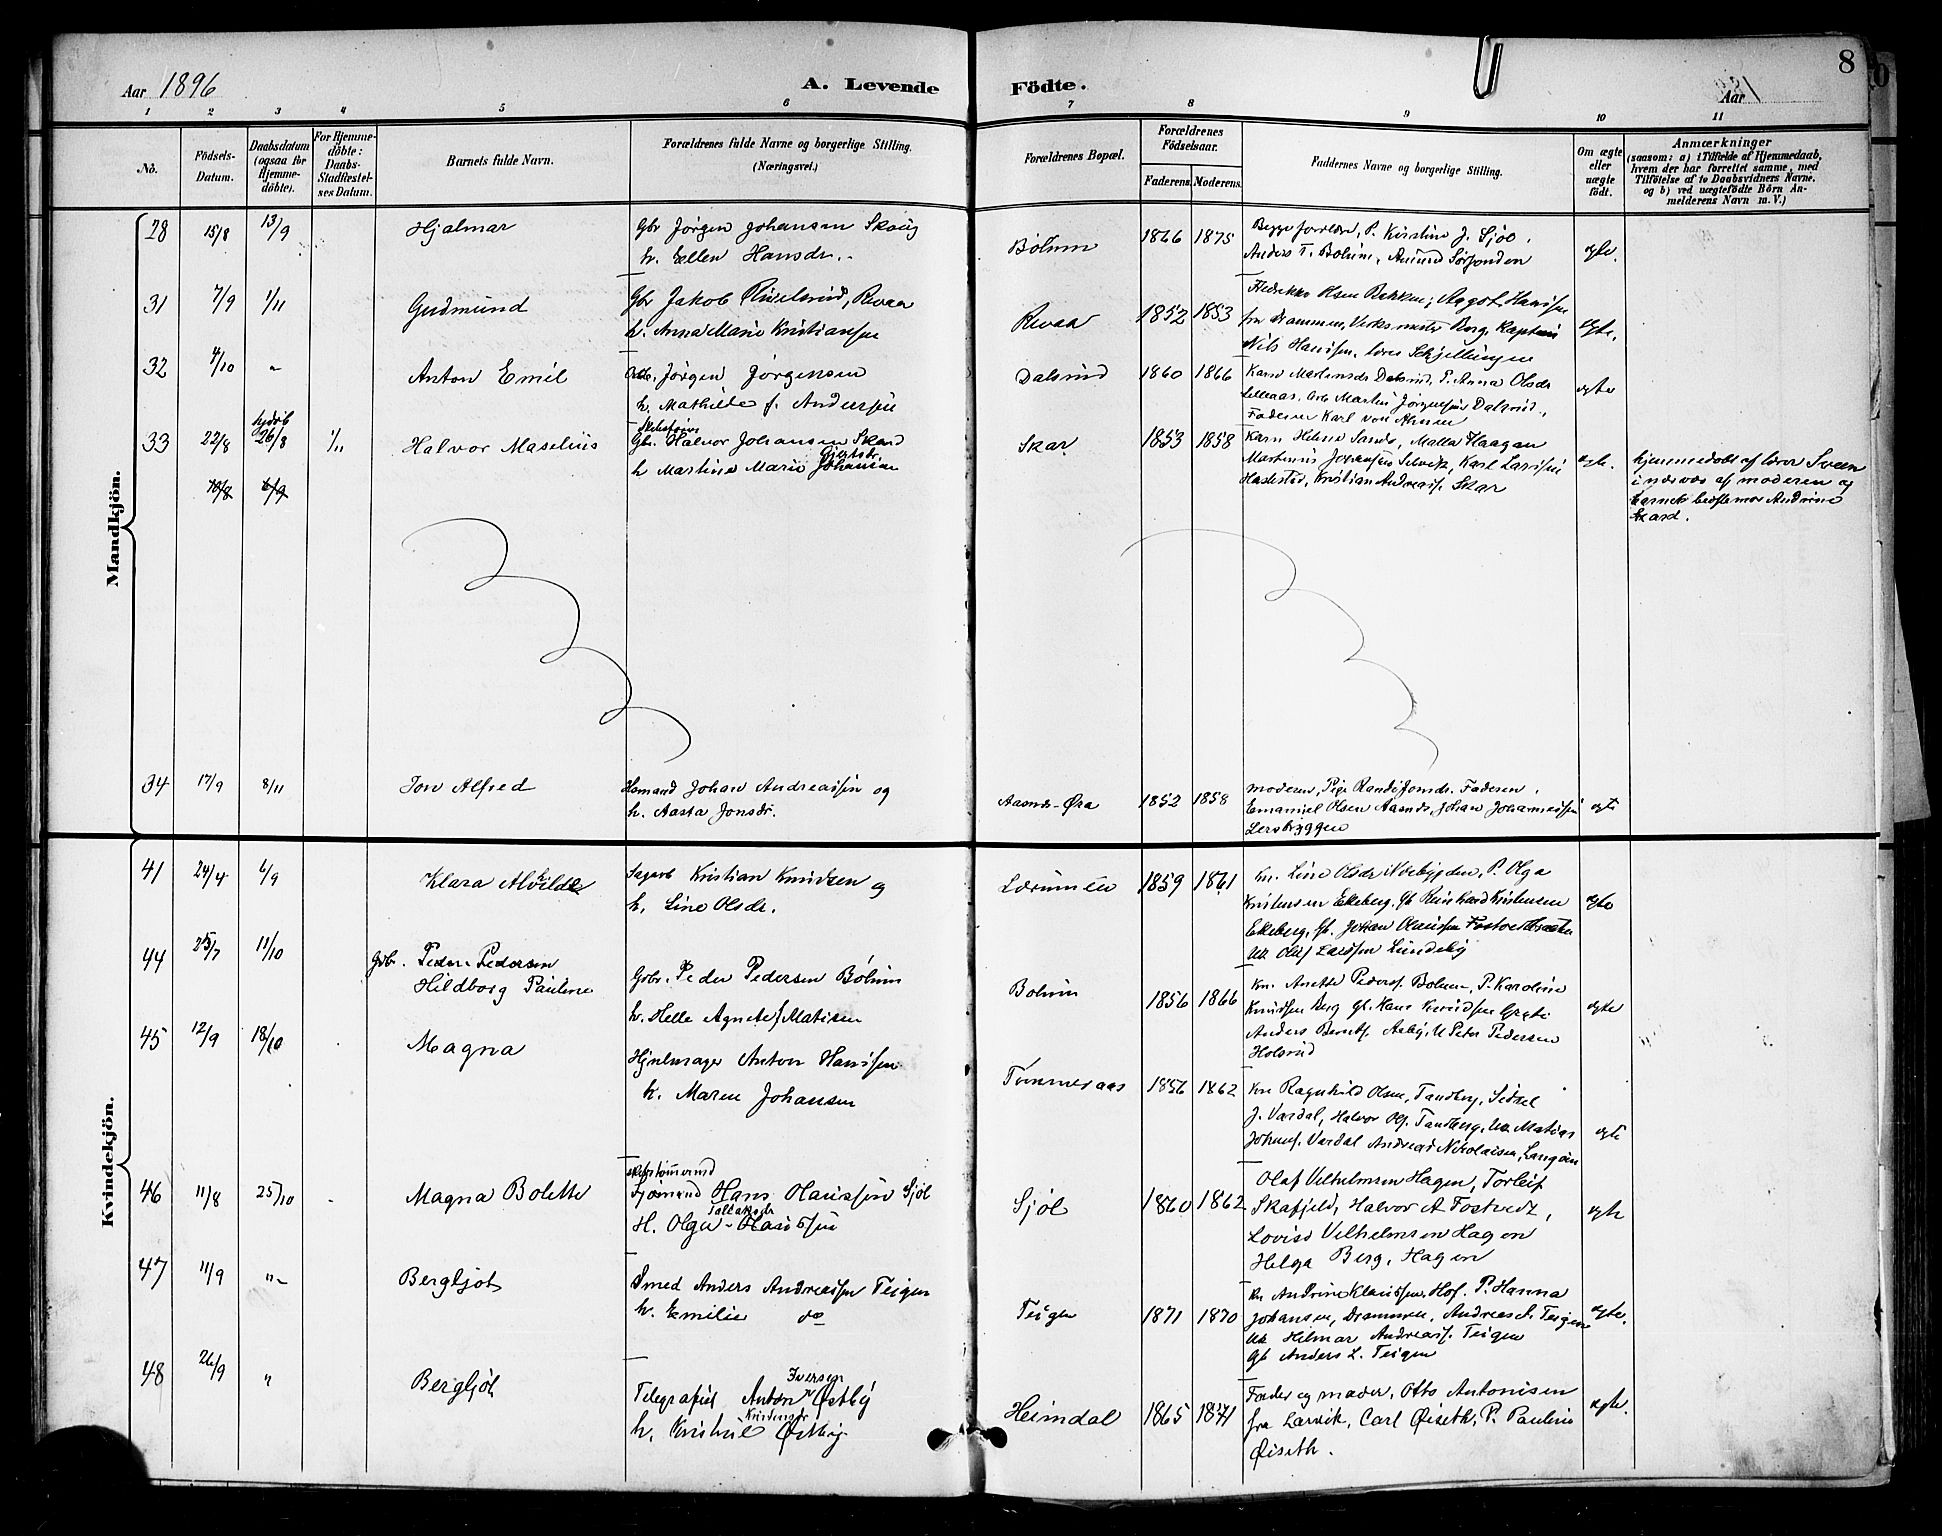 Aar 1896
A. Levende Födte.
8
Aar
1 2 3 4 5 6 7 8 9 10 11
No.
Födsels-Datum.
Daabsdatum (ogsaa for Hjemme-döbte).
For Hjemme-döbte: Daabs-Stadfæstel-ses Datum.
Barnets fulde Navn.
Forældrenes fulde Navne og borgerlige Stilling. (Næringsvei.)
Forældrenes Bopæl.
Forældrenes Födselsaar.
Faderens. Moderens.
Faddernes Navne og borgerlige Stilling.
Om ægte eller uægte födt.
Anmærkninger
(saasom: a) i Tilfælde af Hjemmedaab,
hvem der har forrettet samme, med
Tilföielse af to Daabsvidners Navne.
og b) ved uægtefödte Börn An-
melderens Navn m. V.)
Mandkjön.
28 15/8 13/9 Hjalmar
Gbr Jörgen Johansen Skoug
h. Ellen Hansdr.
Bolum 1866 1875
Begge forældre, P. Kirstine J. Sjöl.
Anders T. Bolum,
egte.
31 7/9 1/11 Gudmund
Gbr Jakob Revaa
h. Anna Marie Kristiansen
Revaa 1852 1853
Olsen Bakken, Aagot Hanssen
fra Drammen, Verksmester Berg, Kaptein
Nils Hanssen,
egte.
32 4/10 " Anton Emil
Jörgen Jörgensen
h. Mathilde f. Anderssen
Dalsrud 1860 1866
Karen Martinsdr Dalsrud, P. Anna Olsdr
Martin Jörgensen Dalsrud,
Faderen Karl von
egte
33 22/8 hjdöb 26/8 1/11 Halvor Maselius
Gbr. Halvor Johansen Skard
h Martine Marie Gjertsdr Johansen
Skar 1853 1858
Karn Helene Sands, Malla Haagan
Martinius Johansen Selvik, Karl Larssen
Haslestad, Kristian Andreass. Skar
egte.
hjemmedöbt af lærer Sveen
i nærvær af moderen og
barnets bedstemor Andrine
Skard.
19/8 6/9
34 17/9 8/11 Jon Alfred
Husmand Johan Andreassen og
h. Aasta Jonsdr.
Aasnds-Øra 1852 1858
Moderen, Pige Randi Jonsdr. Faderen,
Emanuel Olsen Aasnds, Johan Johannessen
Lersbryggen
egte
Kvindekjön.
41 24/4 6/9 Klara Alvilde
Sagarb Kristian Knudsen og
h. Line Olsdr.
1859 1861
kn. Line Olsdr P. Olga
Kristensen Ekeberg, Gb Reinhard Kristensen
Ekeberg, Gb. Johan Olaussen
Uk Olaf Larssen Lundeby
egte
44 25/7 11/10 Gbr. Peder Pedersen
Hildborg Pauline
Gbr. Peder Pedersen Bolum
h. Helle Agnete f. Matisen
Bolum 1856 1866
Kn. Anette Peders. Bolum, P. Karoline
Knudsen Berg Gb. Hans Knudsen Grette
Anders Berntsf. Aasby, U Peter Pedersen
Holsrud
egte
45 12/9 18/10 Magna
Hjulmager Anton Hanssen
h. Maren Johansen
Tommeraas 1856 1862
Kn Ragnhild Olsen, Tandberg, Sidsel
J. Vardal, Halvor Ols. Tandberg, Uk. Matias
Johans. Vardal Andreas Nikolaisen, Langøen
egte
46 11/8 25/10 Magna Bolette
Skibstømmermd
Sjømand Hans Hanssen Sjöl
H. Olga Tollaksdr Hanssen
Sjöl 1860 1862
Olaf Vilhelmsen Hagen, Torleif
Skafjeld, Halvor A Fostvedt,
Lovise Vilhelmsen Hagen
Helga Berg, Hagen
egte
47 11/9 " Bergljot
Smed Anders Andreassen Teigen
h. Emilie do
Teigen 1871 1870
Kn Andrine Klaussen, Hof. P. Hanna
Johansen, Drammen, Andreas A. Teigen
Uk Hilmar Andreass. Teigen
Gb Anders L. Teigen
egte.
48 26/9 " Bergljot
Telegrafist Anton Iversen Østby
h. Kristine Kristensdr Østby
Heimdal 1865 1871
Fader og moder, Otto Antonisen
fra Larvik, Carl Øiseth, P. Pauline
Øiseth.
egte.